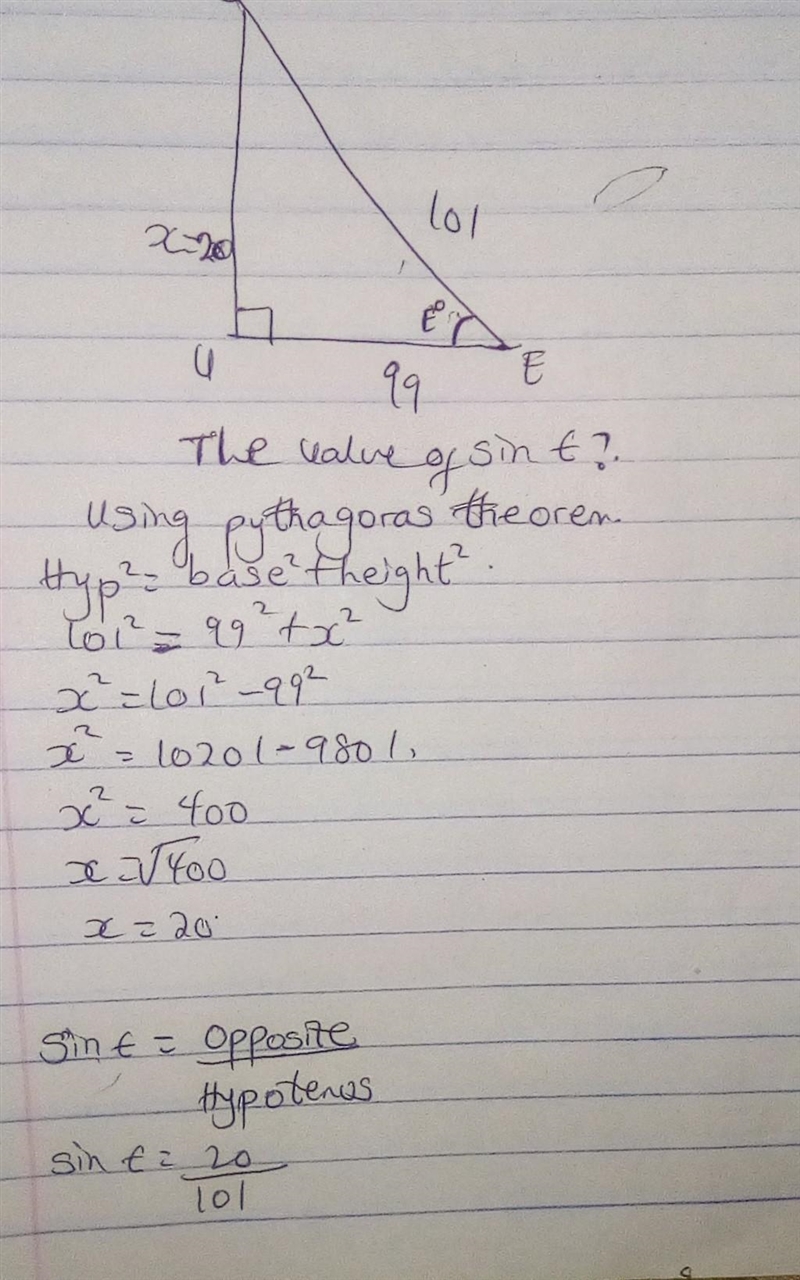 101
x=20
E°
U
E
99
The value of sin E?.
Using pythagoras theorem.
Hyp² = base² + height².
101² = 99² + x²
x² = 101² - 99²
x² = 10201 - 9801.
x² = 400
x = √400
x = 20
Sin E = Opposite
Hypotenus
sin E = 20
101